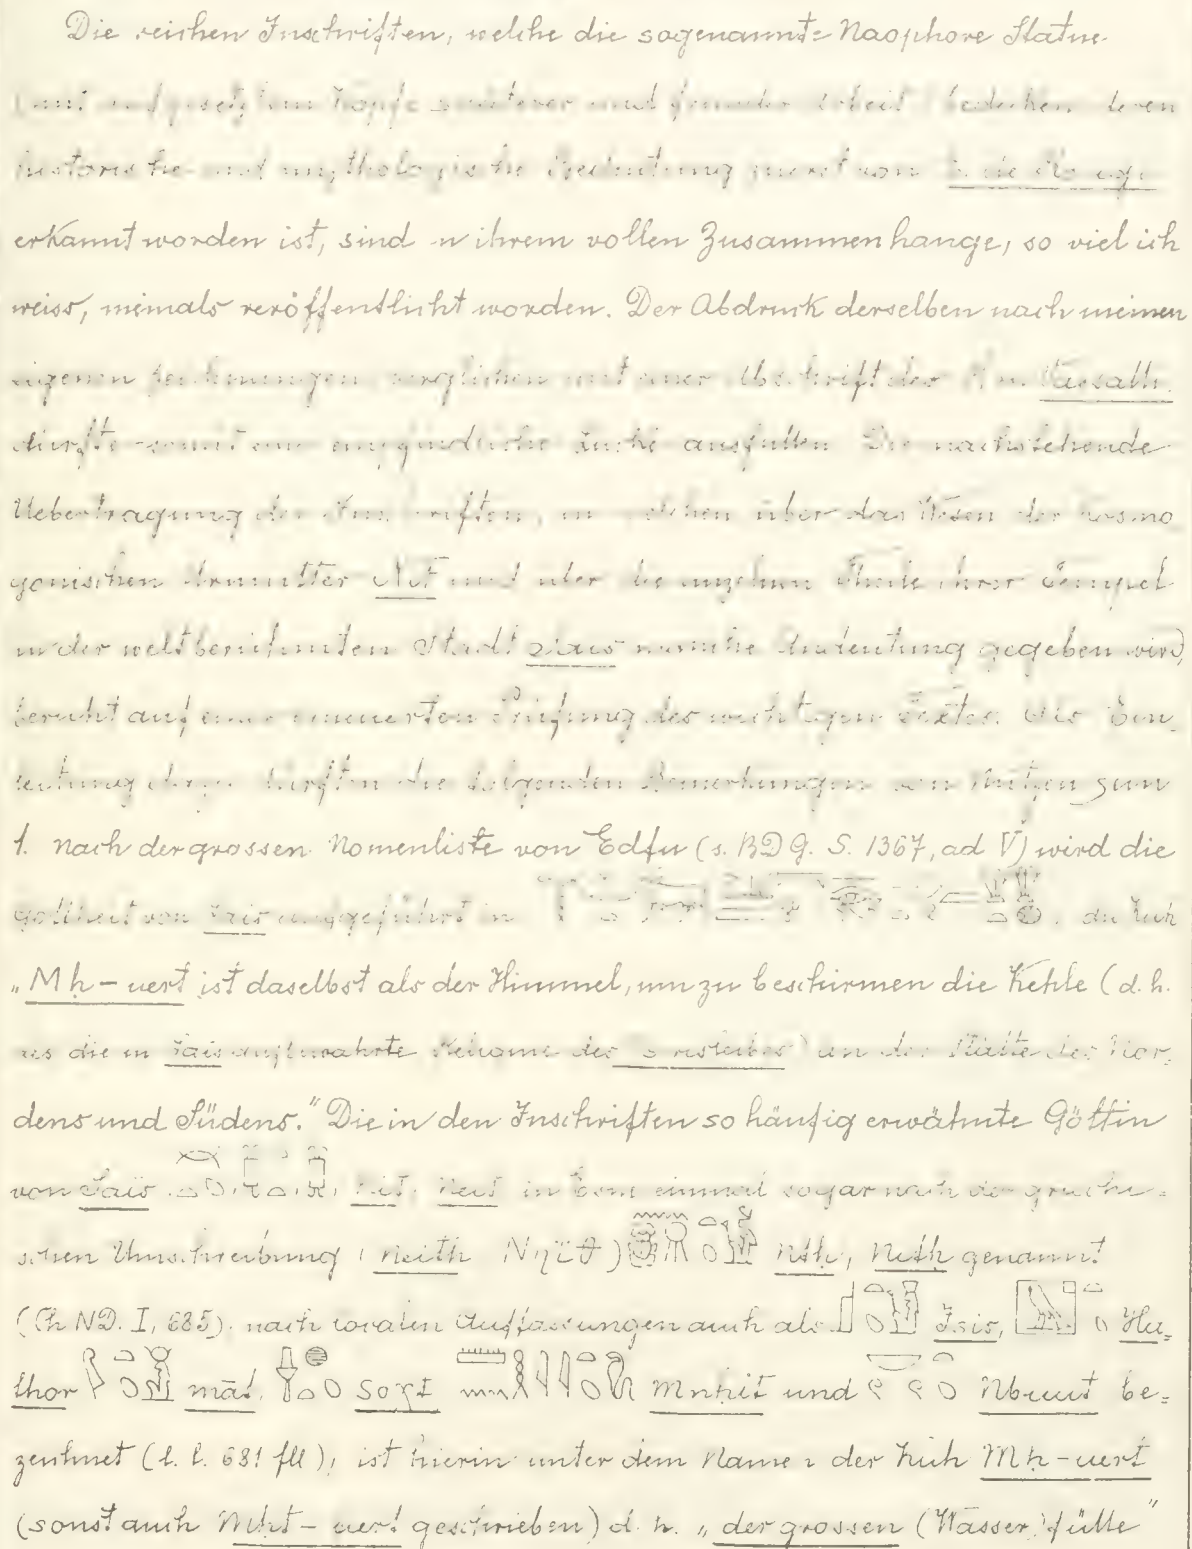 Die reichen Inschriften, welche die sogenannte Naophore Statue
(mit aufgesetztem Kopfe späterer und fremder Arbeit) bedecken deren
historische und mythologische Bedeutung zuerst von
erkannt worden ist, sind in ihrem vollen Zusammenhange, so viel ich
weiss, niemals veröffentlicht worden. Der Abdruck derselben nach meinen
eigenen Zeichnungen, verglichen mit einer Abschrift des
dürfte somit eine empfindliche Lücke ausfüllen. Die nachstehende
Uebertragung der Inschriften, in welchen über das Wesen der kosmo
gonischen Urmutter Nit und über die einzelnen Theile ihrer Tempel
in der weltberühmten Stadt Sais manche Andeutung gegeben wird,
beruht auf einer erneuerten Prüfung des wichtigen Textes. Als Ein
leitung dazu dürften die folgenden Bemerkungen von Nutzen sein
1. nach der grossen Nomenliste von Edfu (s. BDG. S. 1367, ad V) wird die
Gottheit von Sais aufgeführt in die Kuh
„Mḥ-uert ist daselbst als der Himmel, um zu beschirmen die Kehle (d. h.
die in Sais aufbewahrte des ) an der Stätte des Nor-
dens und Südens." Die in den Inschriften so häufig erwähnte Göttin
von Sais Nit, Neit in einmal sogar nach der griechi-
schen Umschreibung (Neith Νηϊθ) Ntḥ, Nitḥ genannt
(Ch ND. I, 685). nach localen Auffassungen auch als Isis, Ha-
thor māt, Soχt Mnḥit und Nbuut be-
zeichnet (l. l. 681 fll), ist hierin unter dem Namen der Kuh Mḥ-uert
(sonst auch Mḥt-uert geschrieben) d. h. „der grossen (Wasser)fülle"